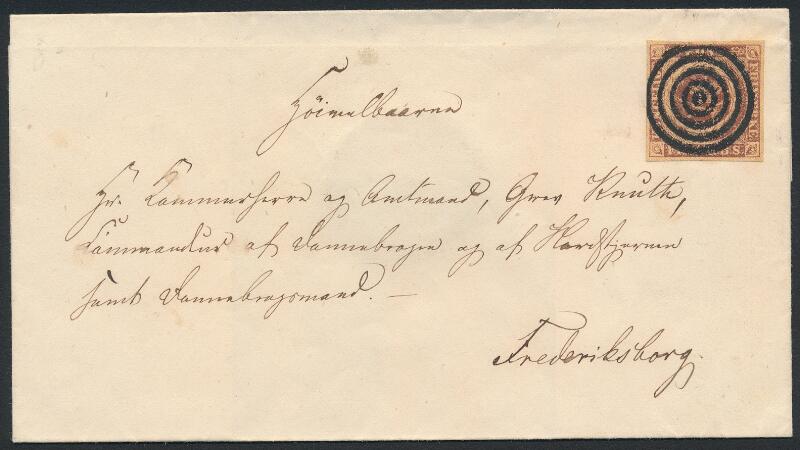 Høivelbaarne
Hr. Kammerherre og Amtmand, Grev Knuth,
Commandeur af Dannebrogen og af Nordstjernen
samt Dannebrogsmand. —
Frederiksborg.